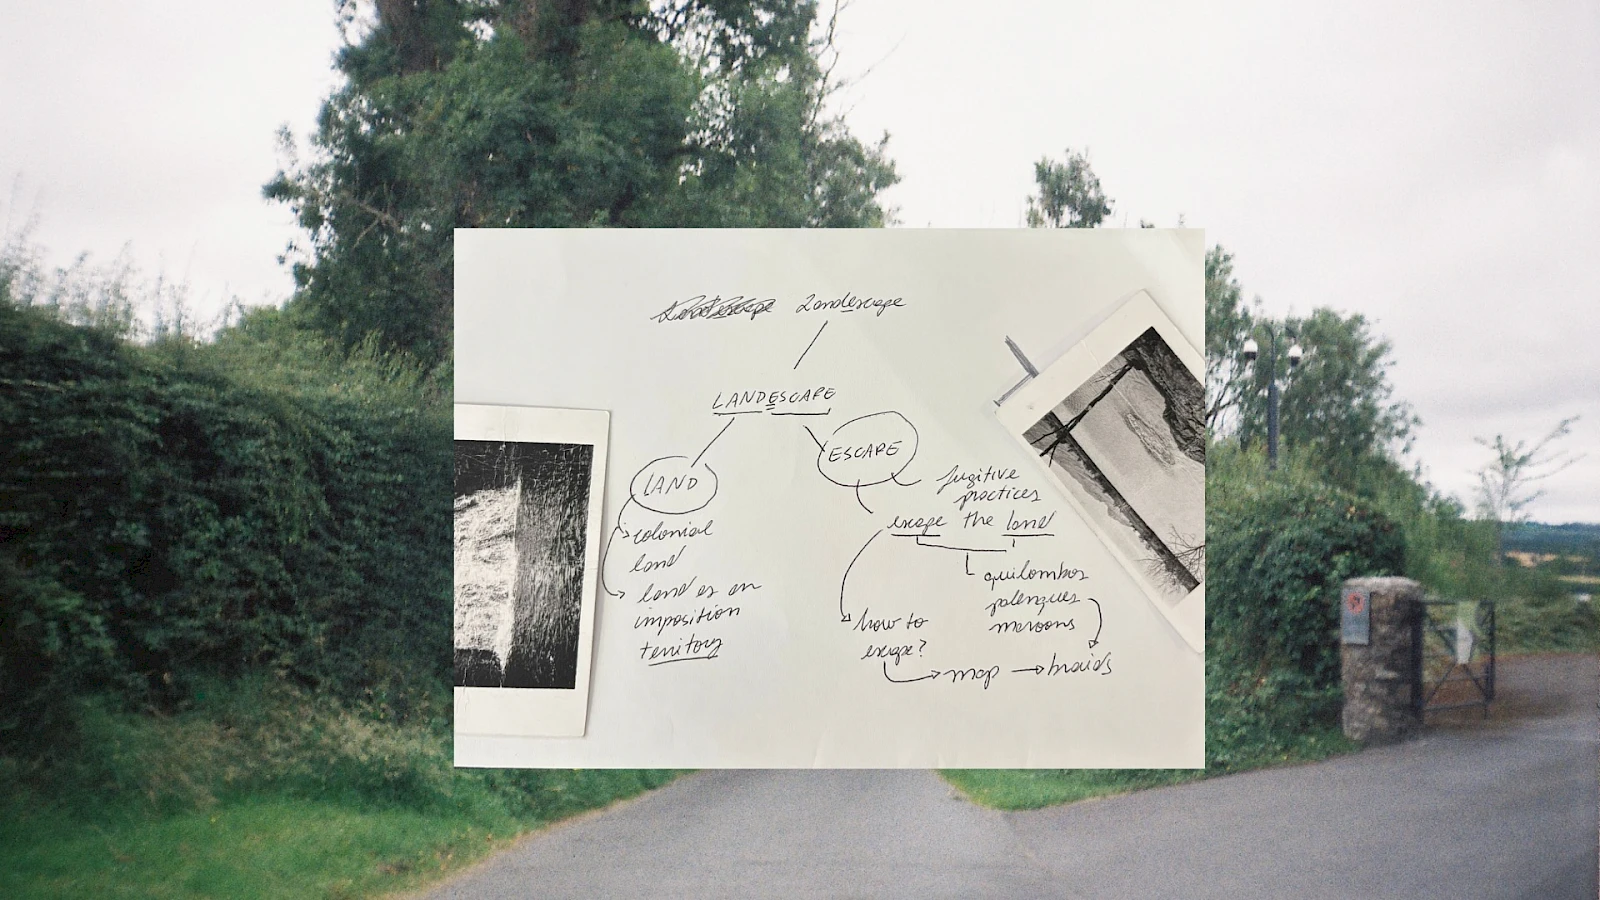 Landescape
LANDESCAPE
LAND
colonial
land
land as an
imposition
territory
ESCAPE
fugitive
practices
escape the land
quilombos
palenques
maroons
how to
escape?
map → braids